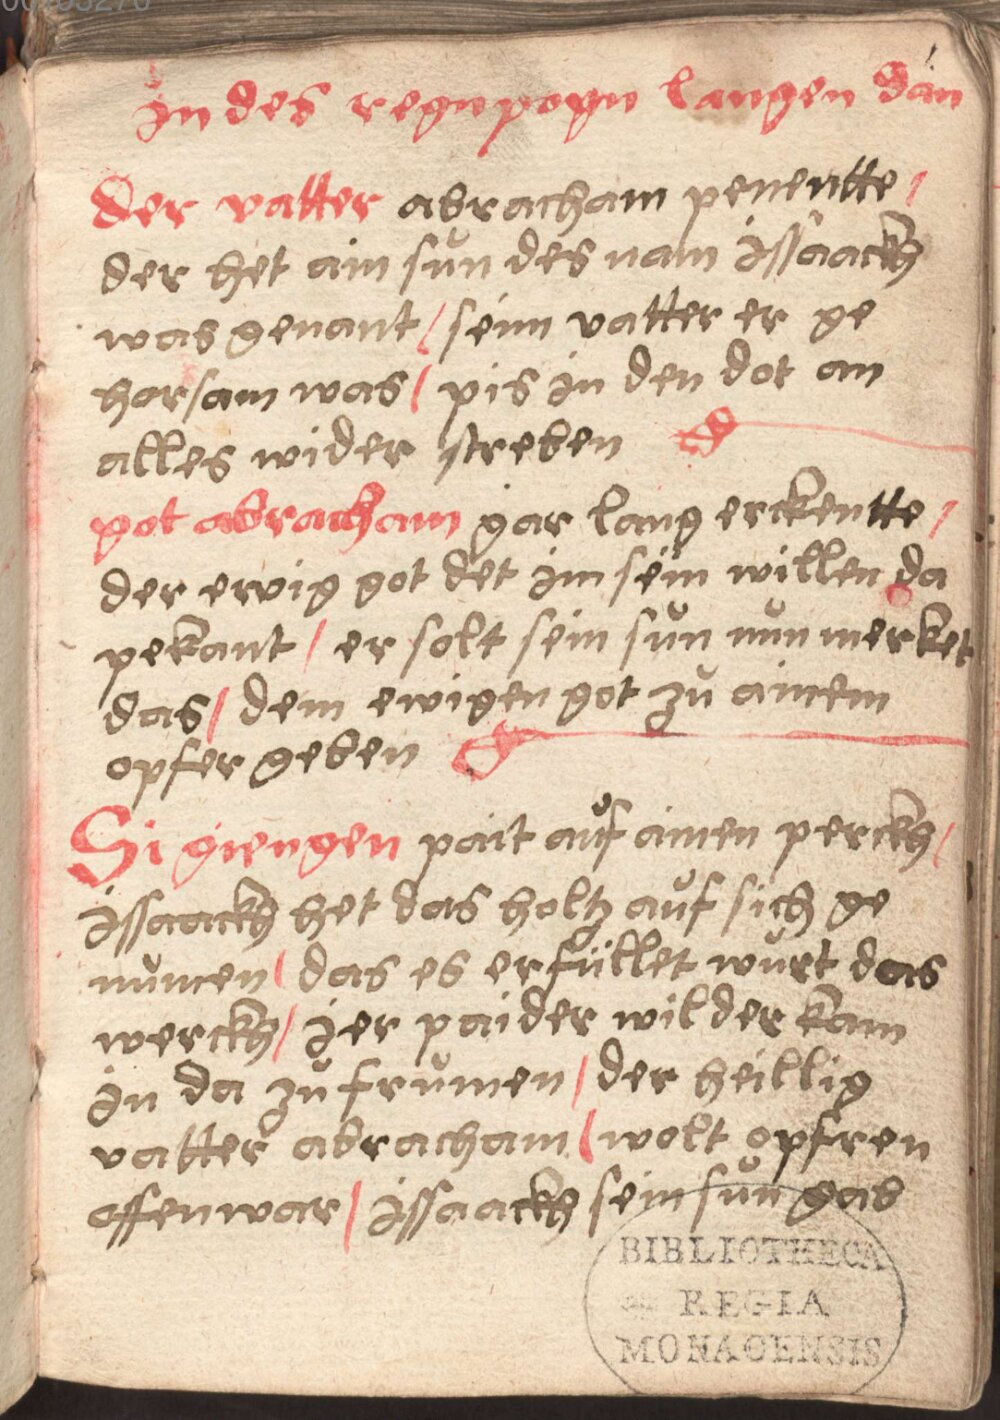 in des regnpogn langen dan
der vatter abracham penentte /
der het ain sun des nam jssaackh
was genant / seinn vatter er ge
horsam was / pis in den dot an
alles wider streben
got abracham gar lang erckentte /
der ewig got det im sein willen da
pekant / er solt sein sun nun mercket
das / dem ewigen got zu ainem
opfer geben
Si giengen pait auf ainen perckh /
jssaackh het das holtz auf sich ge
numen / das es erfüllet wurt das
werckh / jer paider wil der kam
in da zu frumen / der heillig
vatter abracham / wolt opfren
offenwar / jssaackh sein sun gab
BIBLIOTHECA
REGIA
MONACENSIS